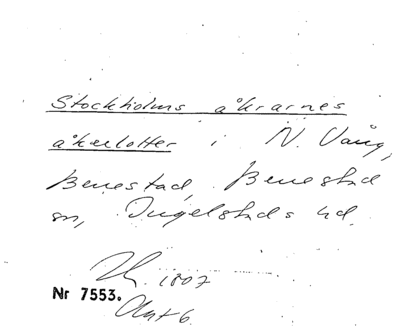 Stockholms åkrarnes
åkerlotter i N. Vång,
Benestad, Benestad
sn, Ingelstads hd.
1807
Nr 7553.
Akt 6